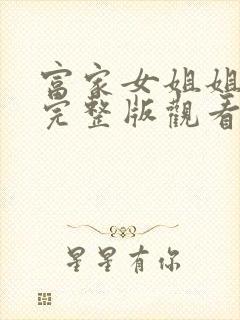 富家女姐姐
完整版觀看
星星有你